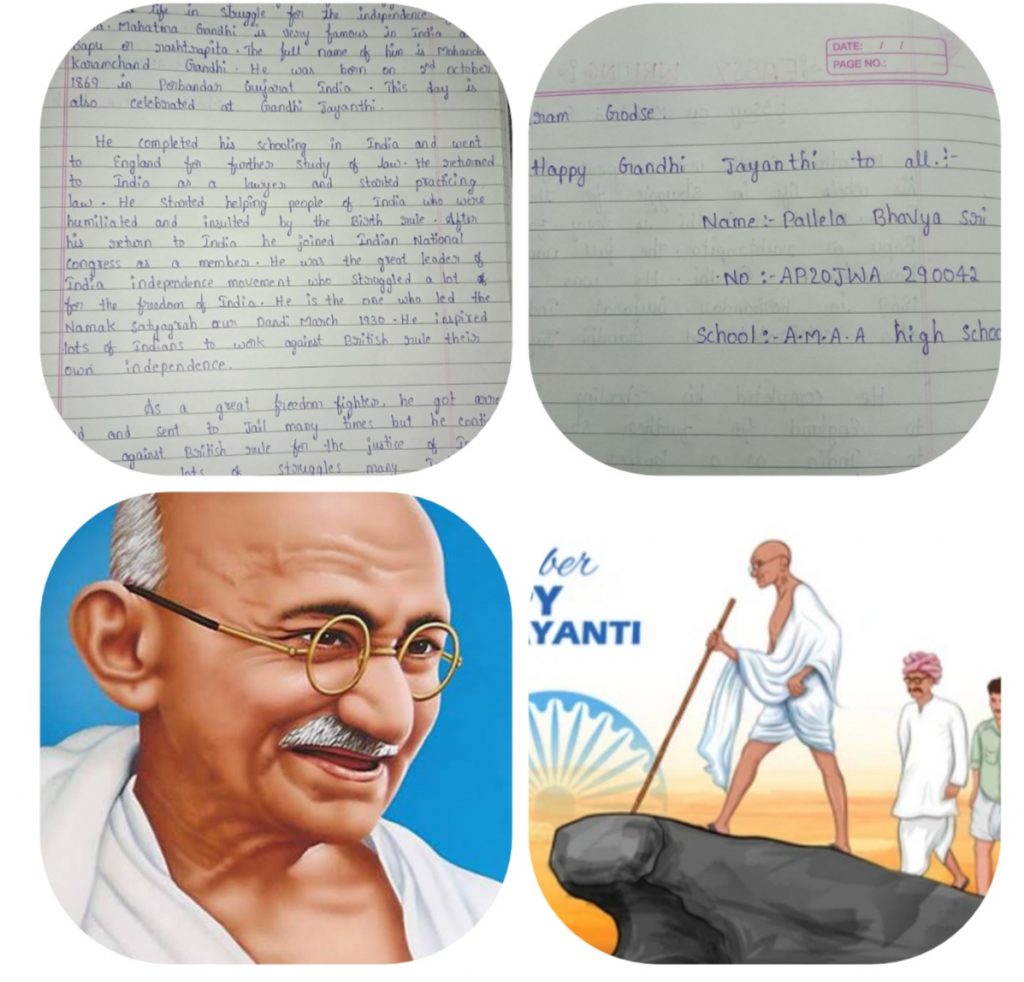 life in struggle for the independence
Mahatma Gandhi is very famous in India
bapu or rashtrapita. The full name of him is Mohanda
Karamchand Gandhi. He was born on 2nd october
1869 in Porbandar Gujarat India. This day is
also celebrated at Gandhi Jayanthi.
He completed his schooling in India and went
to England for further study of law. He returned
to India as a lawyer and started practicing
law. He started helping people of India who were
humiliated and insulted by the Birth rule. After
his return to India he joined Indian National
Congress as a member. He was the great leader of
India independence movement who struggled a lot
for the freedom of India. He is the one who led the
Namak Satyagrah our Dandi March 1930. He inspired
lots of Indians to work against British rule their
own independence.
As a great freedom fighter, he got
and sent to Jail many times but he conti
against British rule for the justice of
lots of struggles many
DATE: / /
PAGE NO.:
ram Godse
Happy Gandhi Jayanthi to all.:-
Name:- Pallela Bhavya Sri
No:- AP20JWA 290042
School:- A.M.A.A high Schoo
ber
Y
YANTI